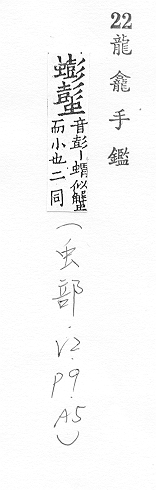 22龍龕手鑑
蟛蟚
音彭丨蜞似蟹
而小也二同
(虫部.V2.P9.A5)